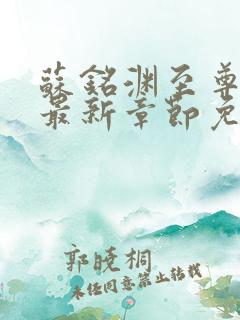 蘇銘渊至尊
最新章節免
郭晓桐
未经同意禁止转载